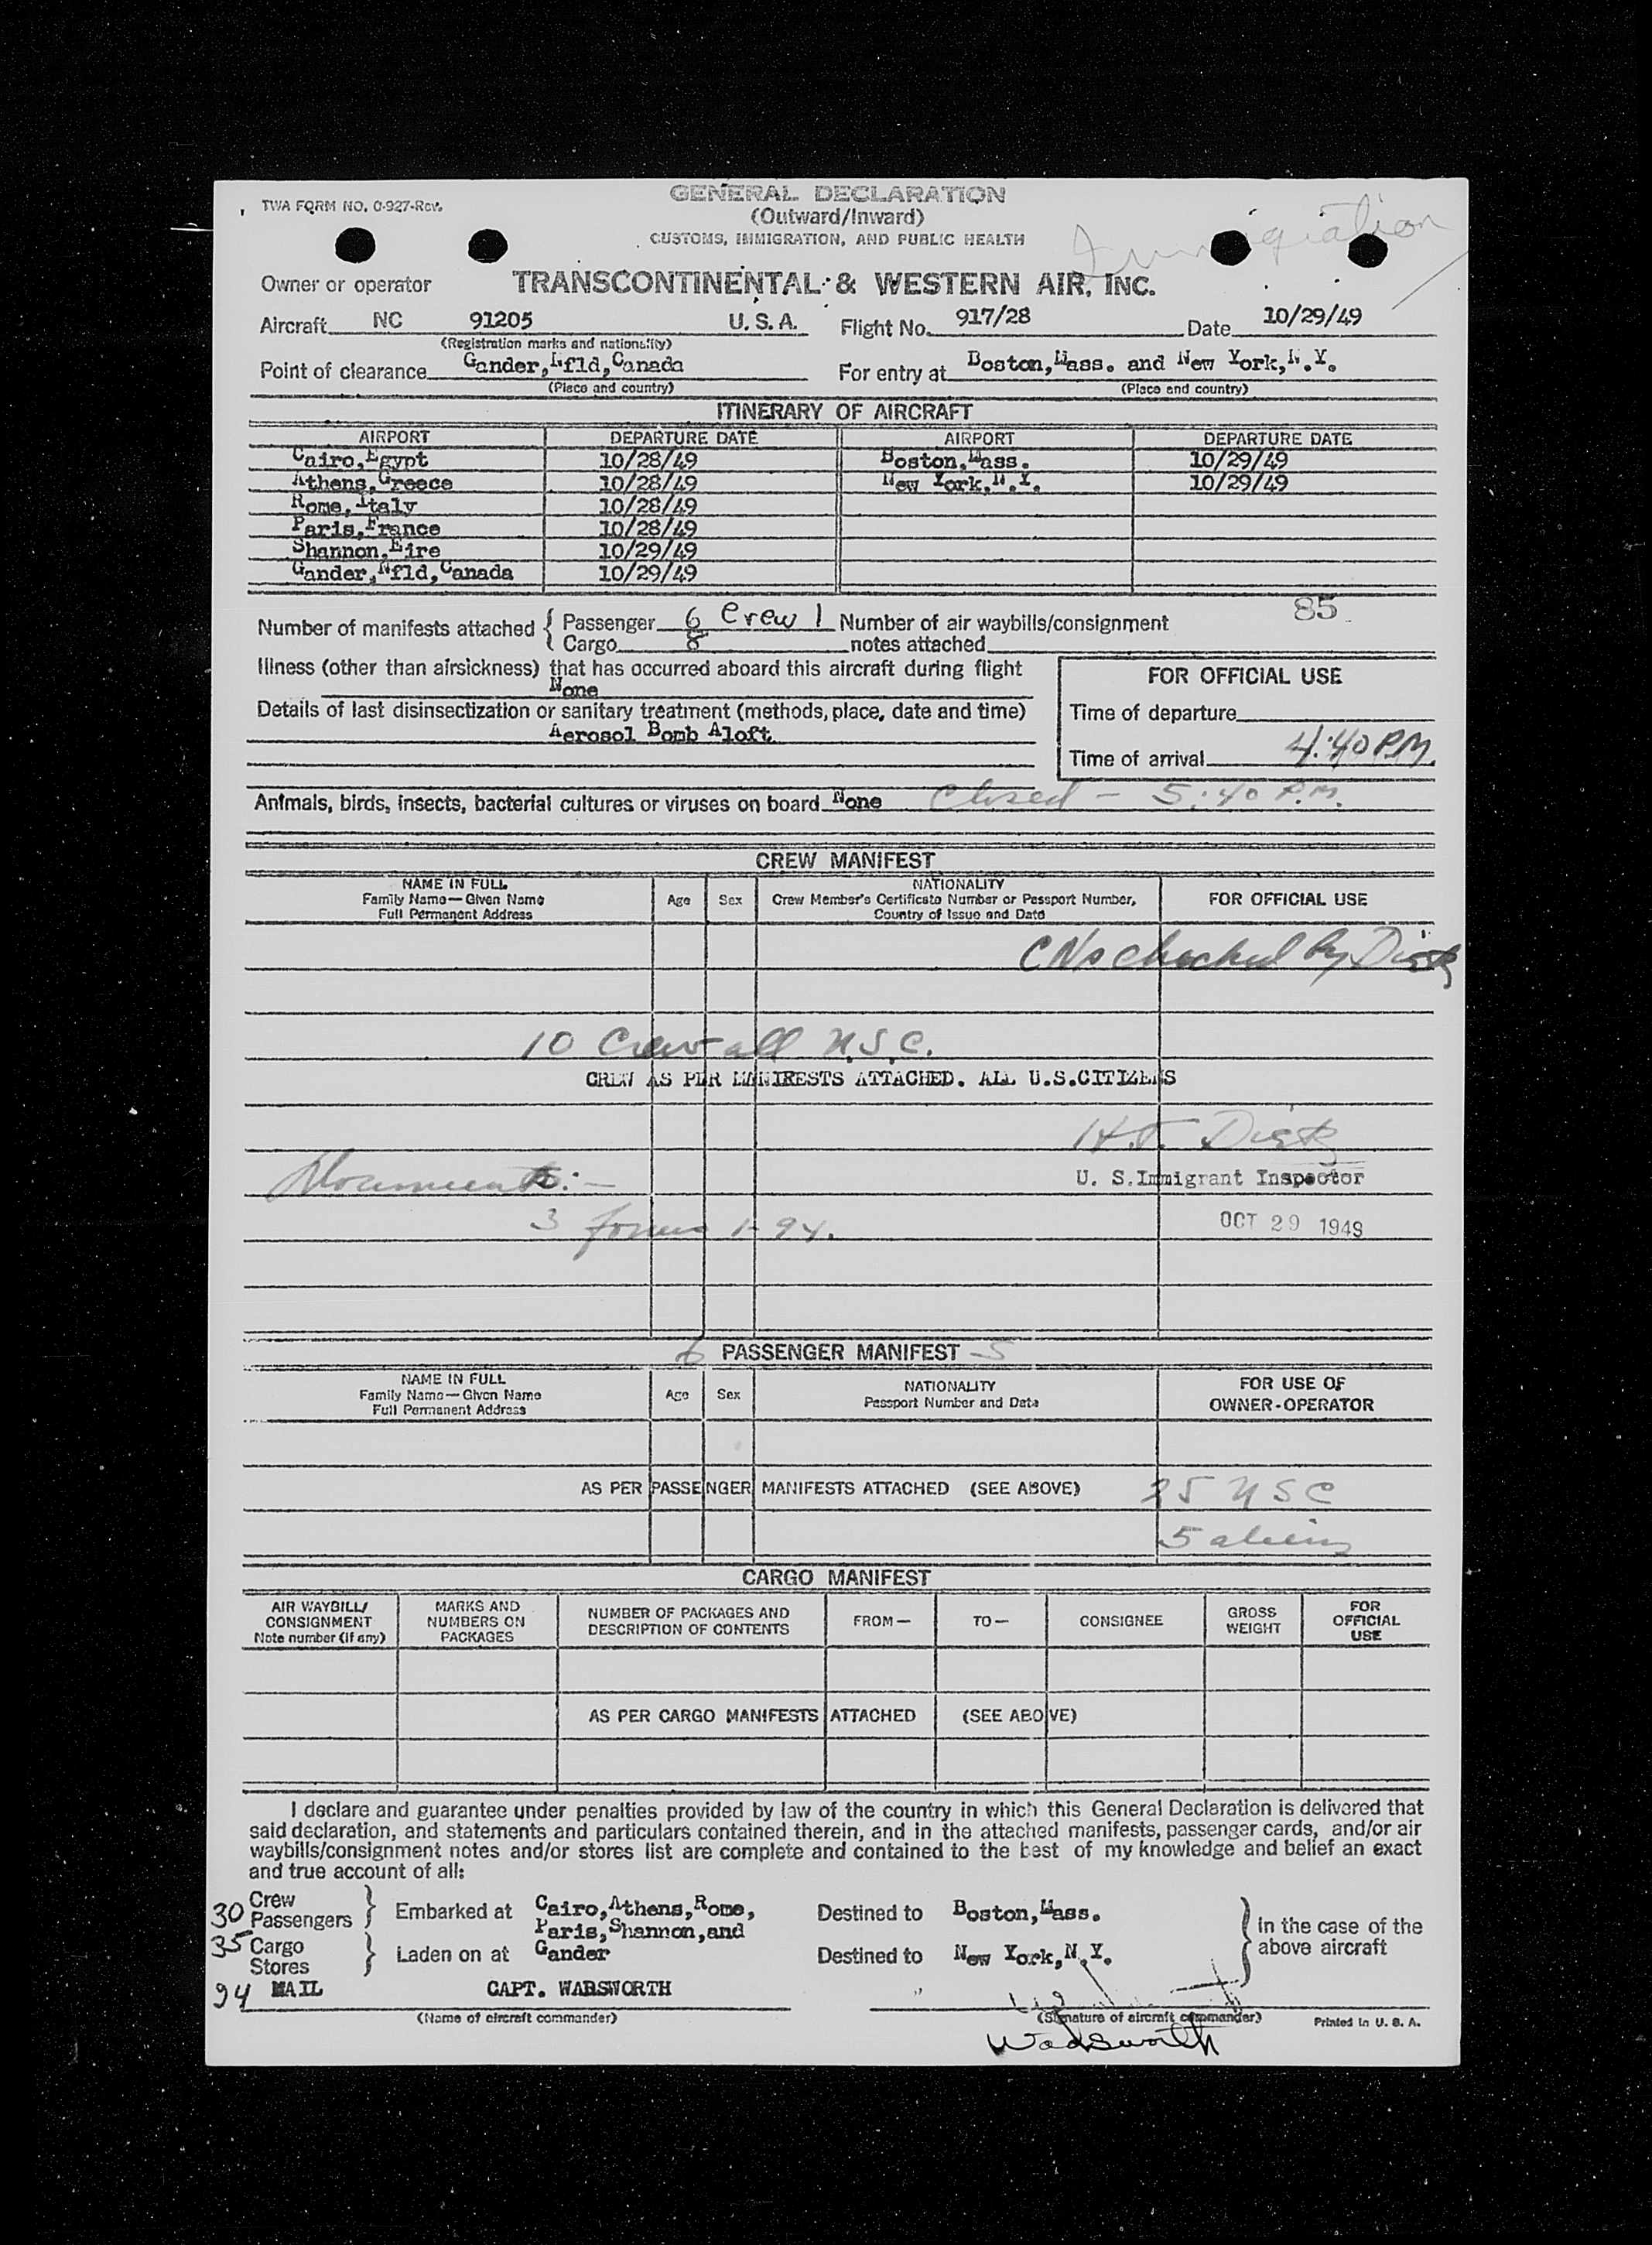 TWA FORM NO. 0-927-Rev.
GENERAL DECLARATION
(Outward/Inward)
CUSTOMS, IMMIGRATION, AND PUBLIC HEALTH
Immigration
Owner or operator TRANSCONTINENTAL & WESTERN AIR, INC.
Aircraft NC 91205 U.S.A. Flight No. 917/28 Date 10/29/49
(Registration marks and nationality)
Point of clearance Gander, Nfld, Canada For entry at Boston, Mass. and New York, N.Y.
(Place and country) (Place and country)
ITINERARY OF AIRCRAFT
AIRPORT DEPARTURE DATE AIRPORT DEPARTURE DATE
Cairo, Egypt 10/28/49 Boston, Mass. 10/29/49
Athens, Greece 10/28/49 New York, N.Y. 10/29/49
Rome, Italy 10/28/49
Paris, France 10/28/49
Shannon, Eire 10/29/49
Gander, Nfld, Canada 10/29/49
Number of manifests attached { Passenger 6 Crew 1 Number of air waybills/consignment 85
Cargo 8 notes attached
Illness (other than airsickness) that has occurred aboard this aircraft during flight
None
FOR OFFICIAL USE
Details of last disinsectization or sanitary treatment (methods, place, date and time)
Aerosol Bomb Aloft
Time of departure
Time of arrival 4:40 PM.
Animals, birds, insects, bacterial cultures or viruses on board None Closed - 5:40 P.M.
CREW MANIFEST
NAME IN FULL
Family Name—Given Name
Full Permanent Address
Age Sex
NATIONALITY
Crew Member's Certificate Number or Passport Number,
Country of Issue and Date
FOR OFFICIAL USE
checked by
10 Crew all U.S.C.
CREW AS PER MANIRESTS ATTACHED. ALL U.S.CITIZENS
H.
Documents:-
U. S.Immigrant Inspector
3 forms I-94.
OCT 29 1949
6 PASSENGER MANIFEST 5
NAME IN FULL
Family Name—Given Name
Full Permanent Address
Age Sex
NATIONALITY
Passport Number and Date
FOR USE OF
OWNER-OPERATOR
AS PER PASSENGER MANIFESTS ATTACHED (SEE ABOVE) 25 USC
5 aliens
CARGO MANIFEST
AIR WAYBILL/
CONSIGNMENT
Note number (if any)
MARKS AND
NUMBERS ON
PACKAGES
NUMBER OF PACKAGES AND
DESCRIPTION OF CONTENTS
FROM— TO— CONSIGNEE
GROSS
WEIGHT
FOR
OFFICIAL
USE
AS PER CARGO MANIFESTS ATTACHED (SEE ABOVE)
I declare and guarantee under penalties provided by law of the country in which this General Declaration is delivered that
said declaration, and statements and particulars contained therein, and in the attached manifests, passenger cards, and/or air
waybills/consignment notes and/or stores list are complete and contained to the best of my knowledge and belief an exact
and true account of all:
Crew
30 Passengers } Embarked at Cairo, Athens, Rome, Destined to Boston, Mass.
Paris, Shannon, and
35 Cargo
Stores } Laden on at Gander Destined to New York, N.Y.
} in the case of the
above aircraft
94 MAIL CAPT. WABSWORTH
(Name of aircraft commander) (Signature of aircraft commander) Printed in U. S. A.
Wadsworth